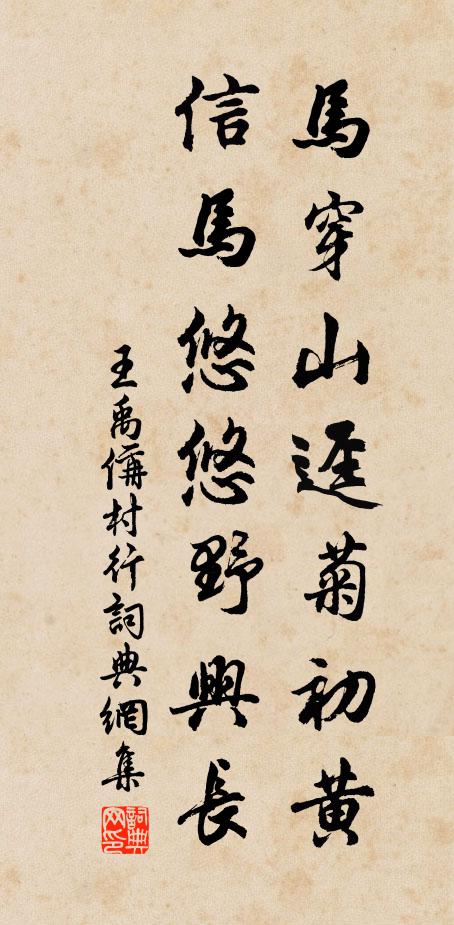 馬穿山逕菊初黃
信馬悠悠野興長
王禹偁村行詞典網集
詞典网印